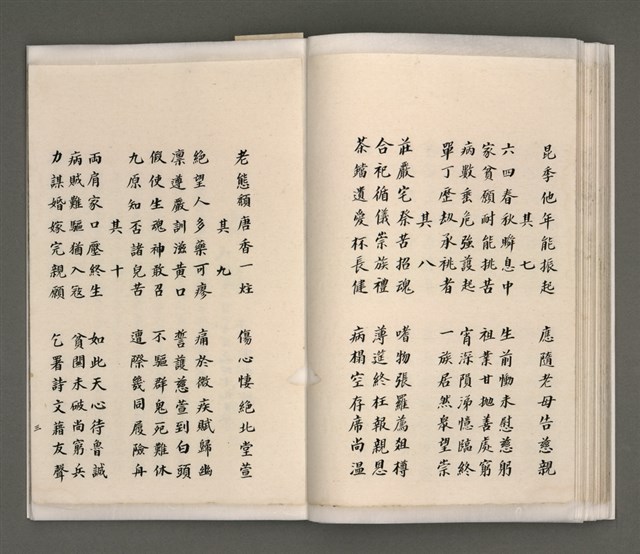 昆季他年能振起　應隨老母告慈親
其七
六四春秋瞬息中　生前慟未慰慈躬
家貧願耐能挑苦　祖業甘拋善處窮
病數垂危強護起　宵深隕涕憶臨終
單丁歷劫承祧者　一族居然眾望崇
其八
莊嚴宅祭苦招魂　嗜物張羅薦俎樽
合祀循儀崇族禮　薄筵終枉報親恩
茶鐺遺愛杯長健　病榻空存席尚溫
老態頹唐香一炷　傷心悽絕北堂萱
其九
絕望人多藥可瘳　痛於微疾賦歸幽
凜遵嚴訓滋黃口　誓護慈萱到白頭
假使生魂神敢召　不驅群鬼死難休
九原知否諸兒苦　遭際幾同履險舟
其十
兩肩家口壓終生　如此天心待魯誠
病賊難驅猶入寇　貧關未破尚窮兵
力謀婚嫁完親願　乞署詩文藉友聲
三